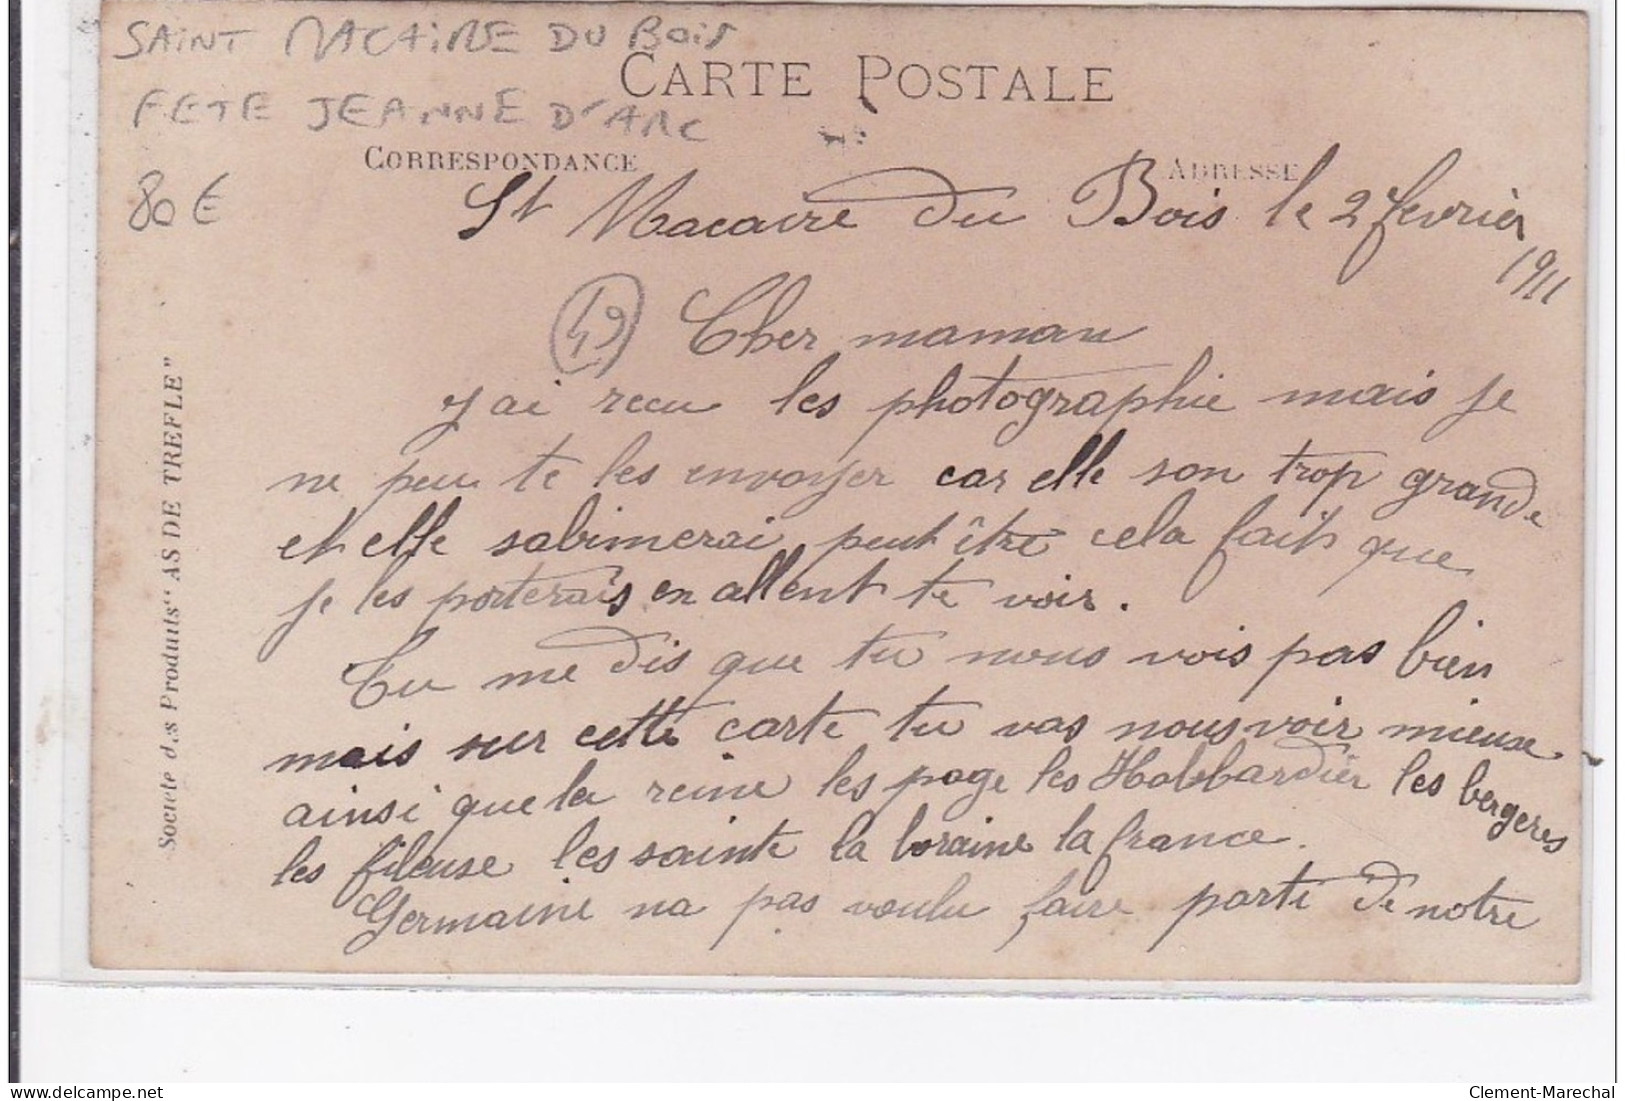 SAINT MACAIRE DU BOIS
FETE JEANNE D'ARC
80€
CARTE POSTALE
CORRESPONDANCE
ADRESSE
St Macaire du Bois le 2 fevrier
1911
49
Cher maman
j'ai recu les photographie mais je
ne peu te les envoyer car elle son trop grande
et elle sabimerai peut être cela fait que
je les porterais en allent te voir.
Tu me dis que tu nous vois pas bien
mais sur cette carte tu vas nous voir mieuse
ainsi que la reine les page les Halbbardier les bergeres
les fileuse les sainte la loraine la france.
Germaine na pas voulu faire parti de notre
Societe des Produits "AS DE TREFLE"
delcampe.net
Clement-Marechal